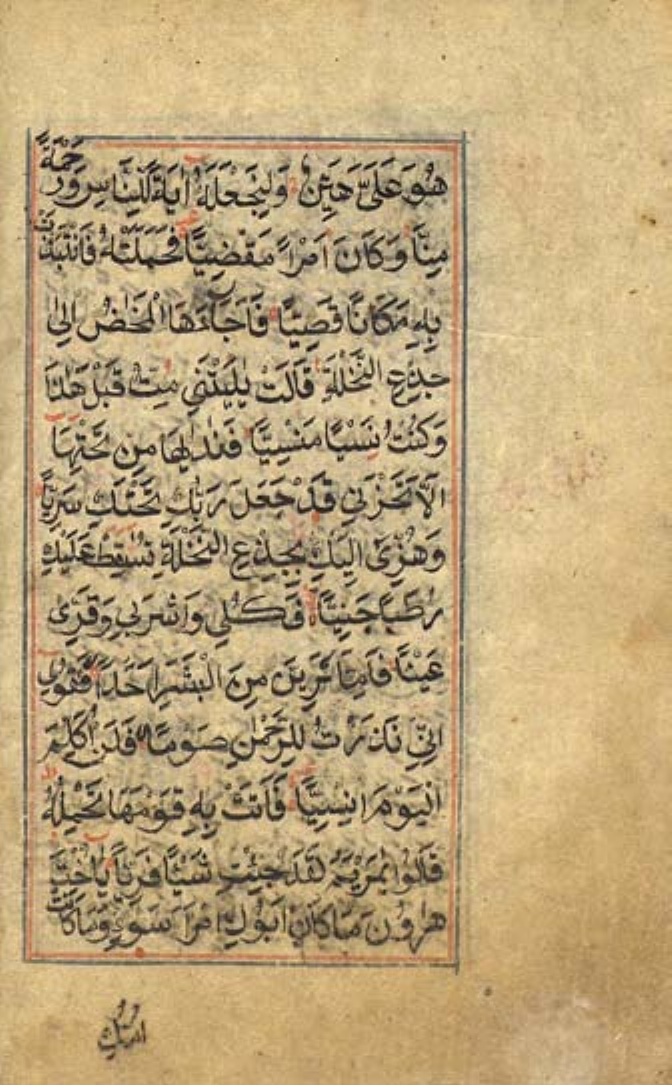 هُوَ عَلَىَّ هَيِّنٌ وَلِنَجْعَلَهُ اٰيَةً لِّلنَّاسِ وَرَحْمَةً
مِنَّا وَكَانَ اَمْرًا مَقْضِيًّا فَحَمَلَتْهُ فَانْتَبَذَتْ
بِهِ مَكَانًا قَصِيًّا فَاَجَآءَهَا الْمَخَاضُ اِلىٰ
جِذْعِ النَّخْلَةِ قَالَتْ يٰلَيْتَنِى مِتُّ قَبْلَ هٰذَا
وَكُنْتُ نَسْيًا مَنْسِيًّا فَنَادٰيهَا مِنْ تَحْتِهَا
اَلَّا تَحْزَنِى قَدْ جَعَلَ رَبُّكِ تَحْتَكِ سَرِيًّا
وَهُزِّى اِلَيْكِ بِجِذْعِ النَّخْلَةِ تُسٰقِطْ عَلَيْكِ
رُطَبًا جَنِيًّا فَكُلِى وَاشْرَبِى وَقَرِّى
عَيْنًا فَاِمَّا تَرَيِنَّ مِنَ الْبَشَرِ اَحَدًا فَقُولِى
اِنِّى نَذَرْتُ لِلرَّحْمٰنِ صَوْمًا فَلَنْ اُكَلِّمَ
الْيَوْمَ اِنْسِيًّا فَاَتَتْ بِهِ قَوْمَهَا تَحْمِلُهُ
قَالُوا يٰمَرْيَمُ لَقَدْ جِئْتِ شَيْئًا فَرِيًّا يَا اُخْتَ
هٰرُونَ مَا كَانَ اَبُوكِ امْرَاَ سَوْءٍ وَمَا كَانَتْ
اُمُّكِ